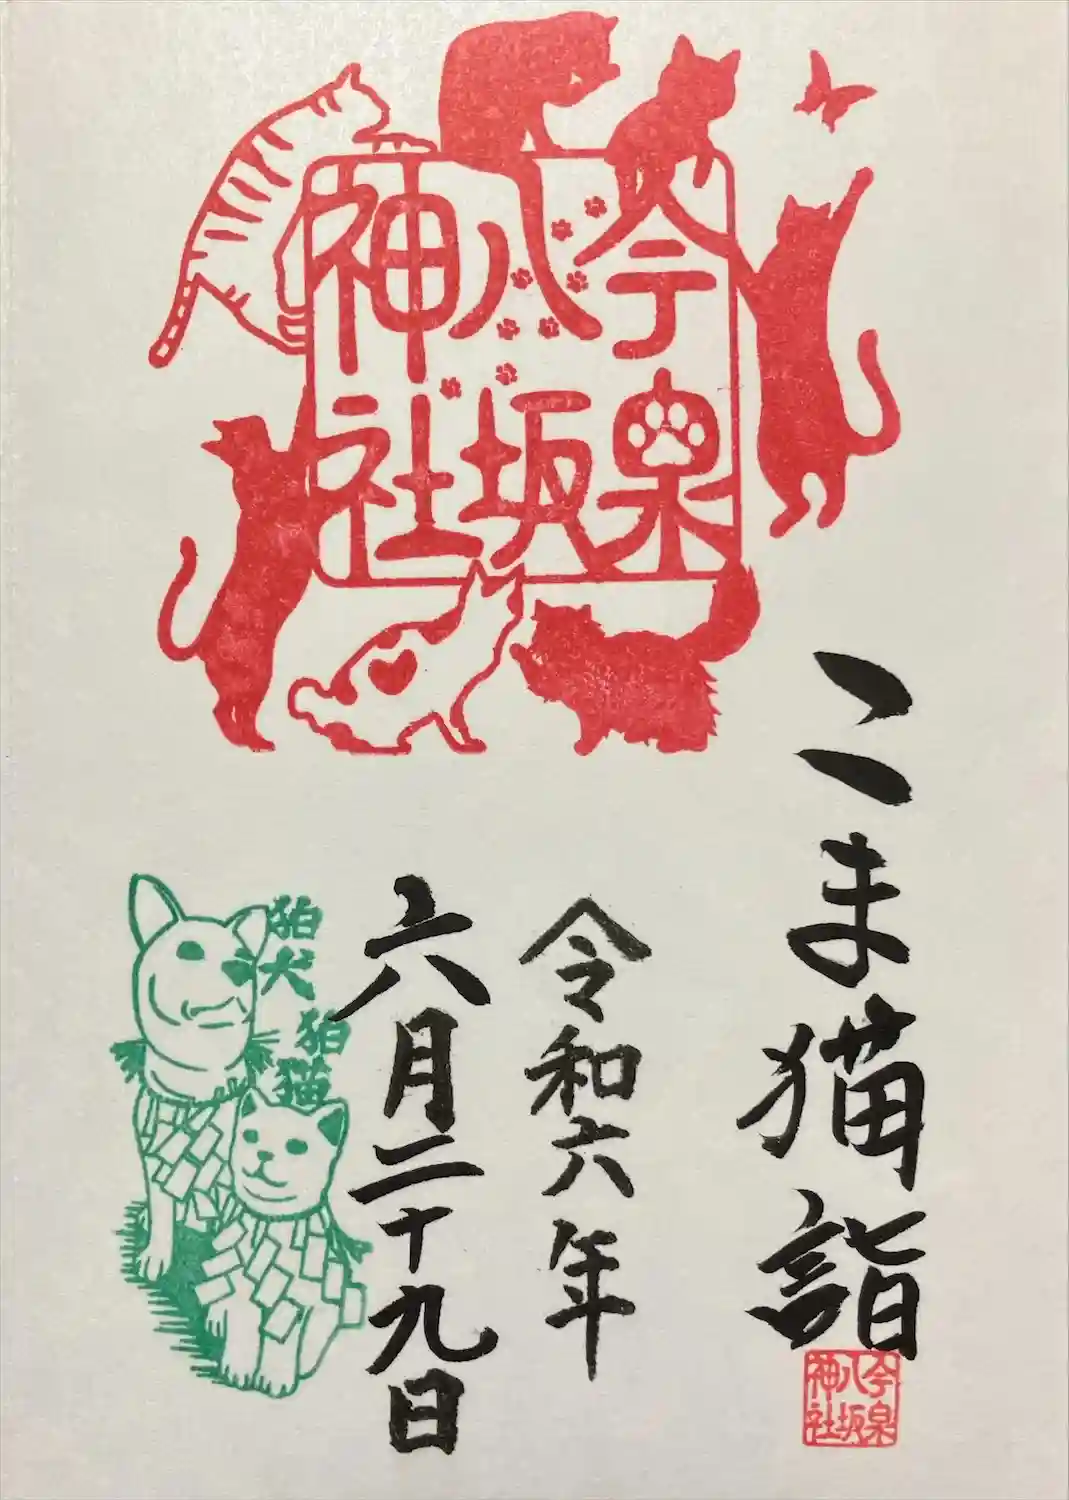 今泉
八坂
神社
こま猫詣
今泉
八坂
神社
令和六年
六月二十九日
狛犬
狛猫